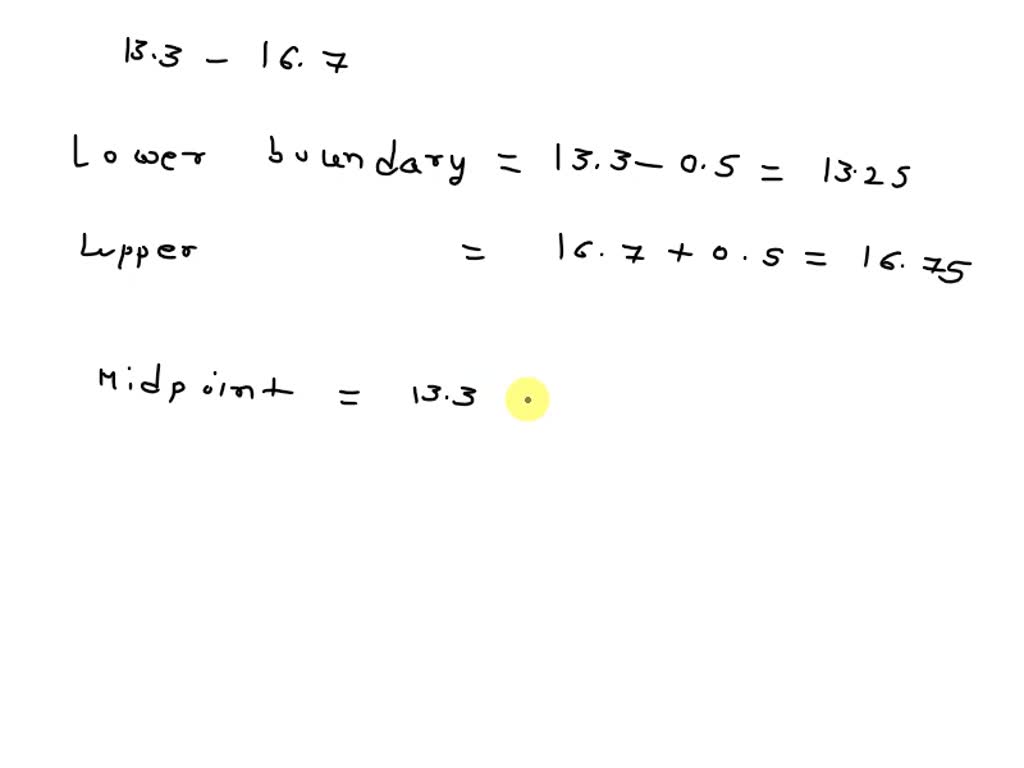 13.3 - 16.7
Lower buundary = 13.3 - 0.5 = 13.25
Upper = 16.7 + 0.5 = 16.75
Midpoint = 13.3